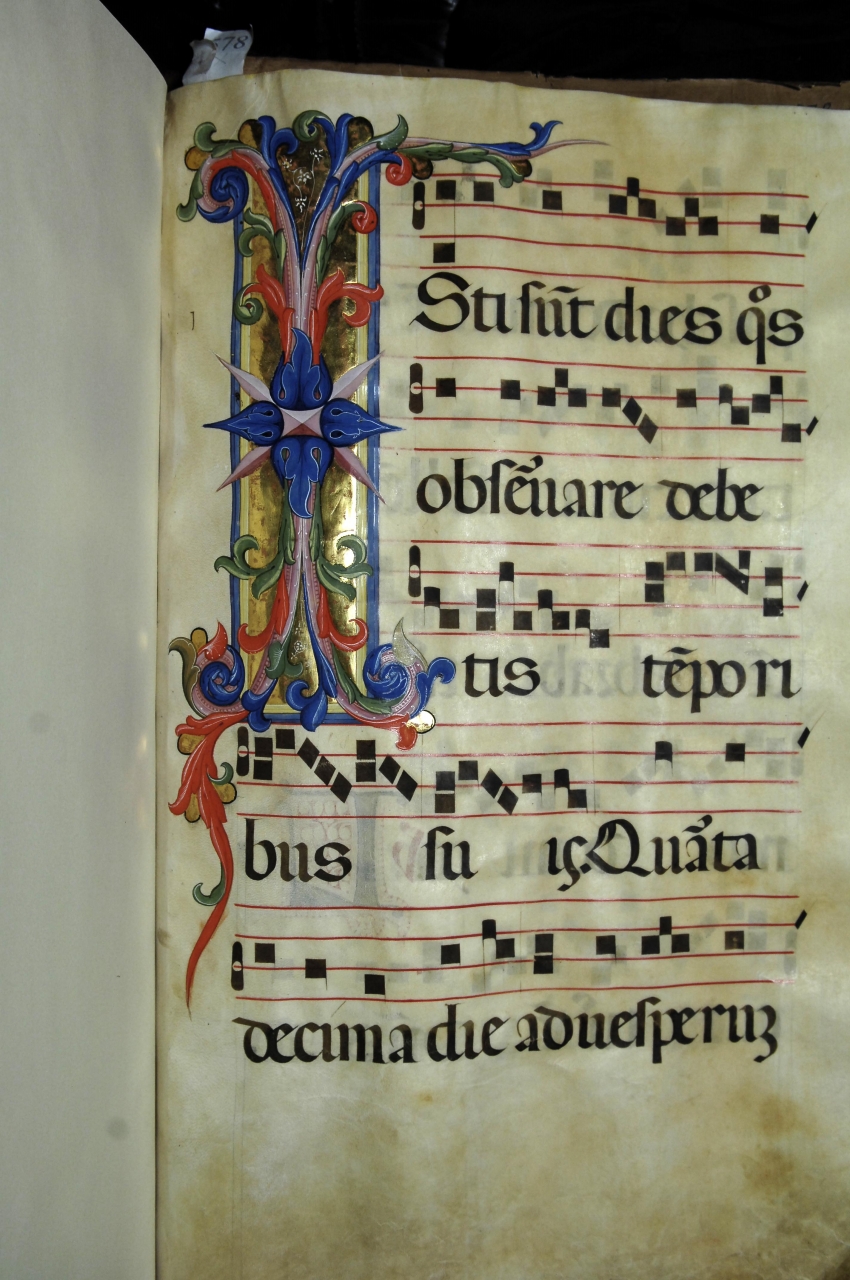 678
1
ISti sūt dies qͦs
obsēuare debe
tis tēpori
bus su is. Quāta
decima die aduesperuꝫ